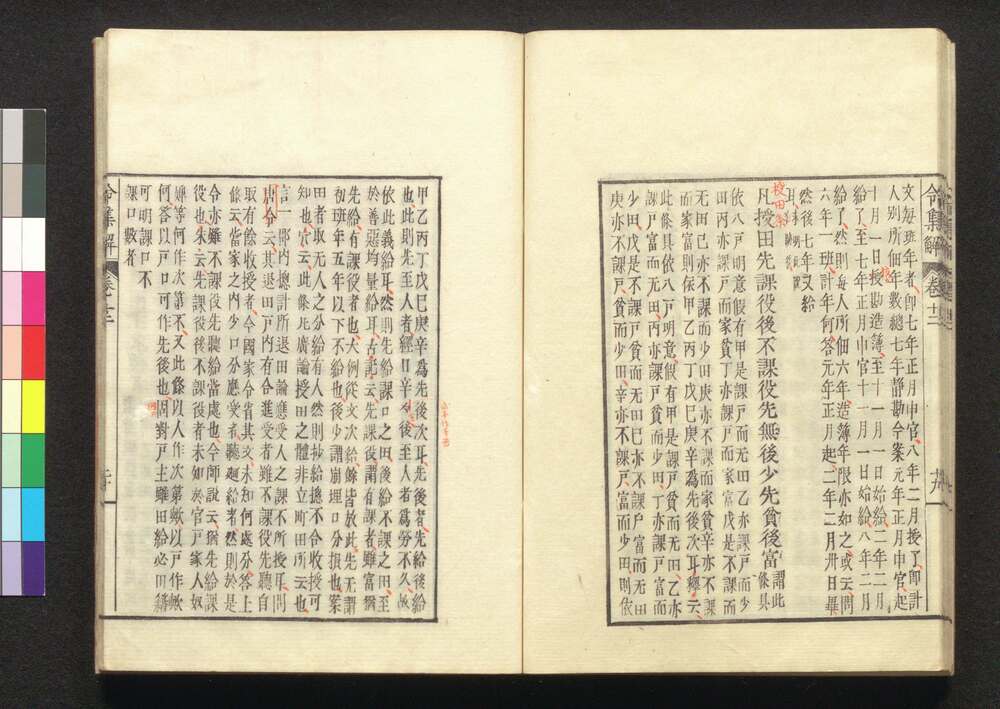 文每班年者、即七年正月申官、八年二月授了、即計
人別所佃年數總七年靜勘今案元年正月申官、起
十月一日授勘造簿、至十一月一日始給、二年二月
給了、至七年正月申官十一月一日始給、八年二月
給了、然則每人所佃六年、造簿年限亦如之、或云、問
六年一班、計年何、答元年正月起、二年二月卅日畢
然後七年又給
校田條
凡授田先課役後不課役先無後少先貧後富謂此條具
依八戸明意假有甲是課戸而無田乙亦課戸而少
田丙亦是課戸而家貧丁亦課戸而家富戊是不課而
無田己亦不課而少田庚亦不課而家貧辛亦不課
而家富則保甲乙丙丁戊己庚辛爲先後次耳、釋云、
此條具依八戸明意、假有甲是課戸貧而無田、乙亦
課戸富而無田、丙亦課戸貧而少田丁亦課戸富而
少田、戊是不課戸貧而無田己亦不課戸富而無田
庚亦不課戸貧而少田、辛亦不課戸富而少田則依
令集解 卷十二 十九
甲乙丙丁戊己庚辛爲先後次耳、先後者、先給後給
也、此則先至人者經日辛今後至人者爲勞不久、故
依此義給耳、然則先給課口之田、後給不課之田、至
於善惡均量給耳、古記云、先課役謂有課者雖富猶
先給、有課役者也、大例從文次給、餘皆放此、先無謂
田者取無人之分給有人然則抄給搃不合收授、可
初班年五年以下不給也、後少謂崩埋口分損也、案
知也、穴云、此條比廣論授田之體、非立町田所云也
言一部內總計所退田論應受人之課不所授耳、問
唐令云、其退田戸內有合進受者、雖不課役先聽自
取、有餘收授者、今國家令省其文、未知何處分答上
條云、當家之內少口分應受者、聽廻給者、然則於是
令亦雖不課役先聽給當處也、今師說云、猶先給課
役也、朱云先課役後不課役者未如於官戸家人奴
婢等何作次第不、又此條以人作次第歟、以戸作歟
何、答以戸口可作先後也、因對戸主雖田給必田籍
可明課口不
課口數者
令集解 卷十二 二十